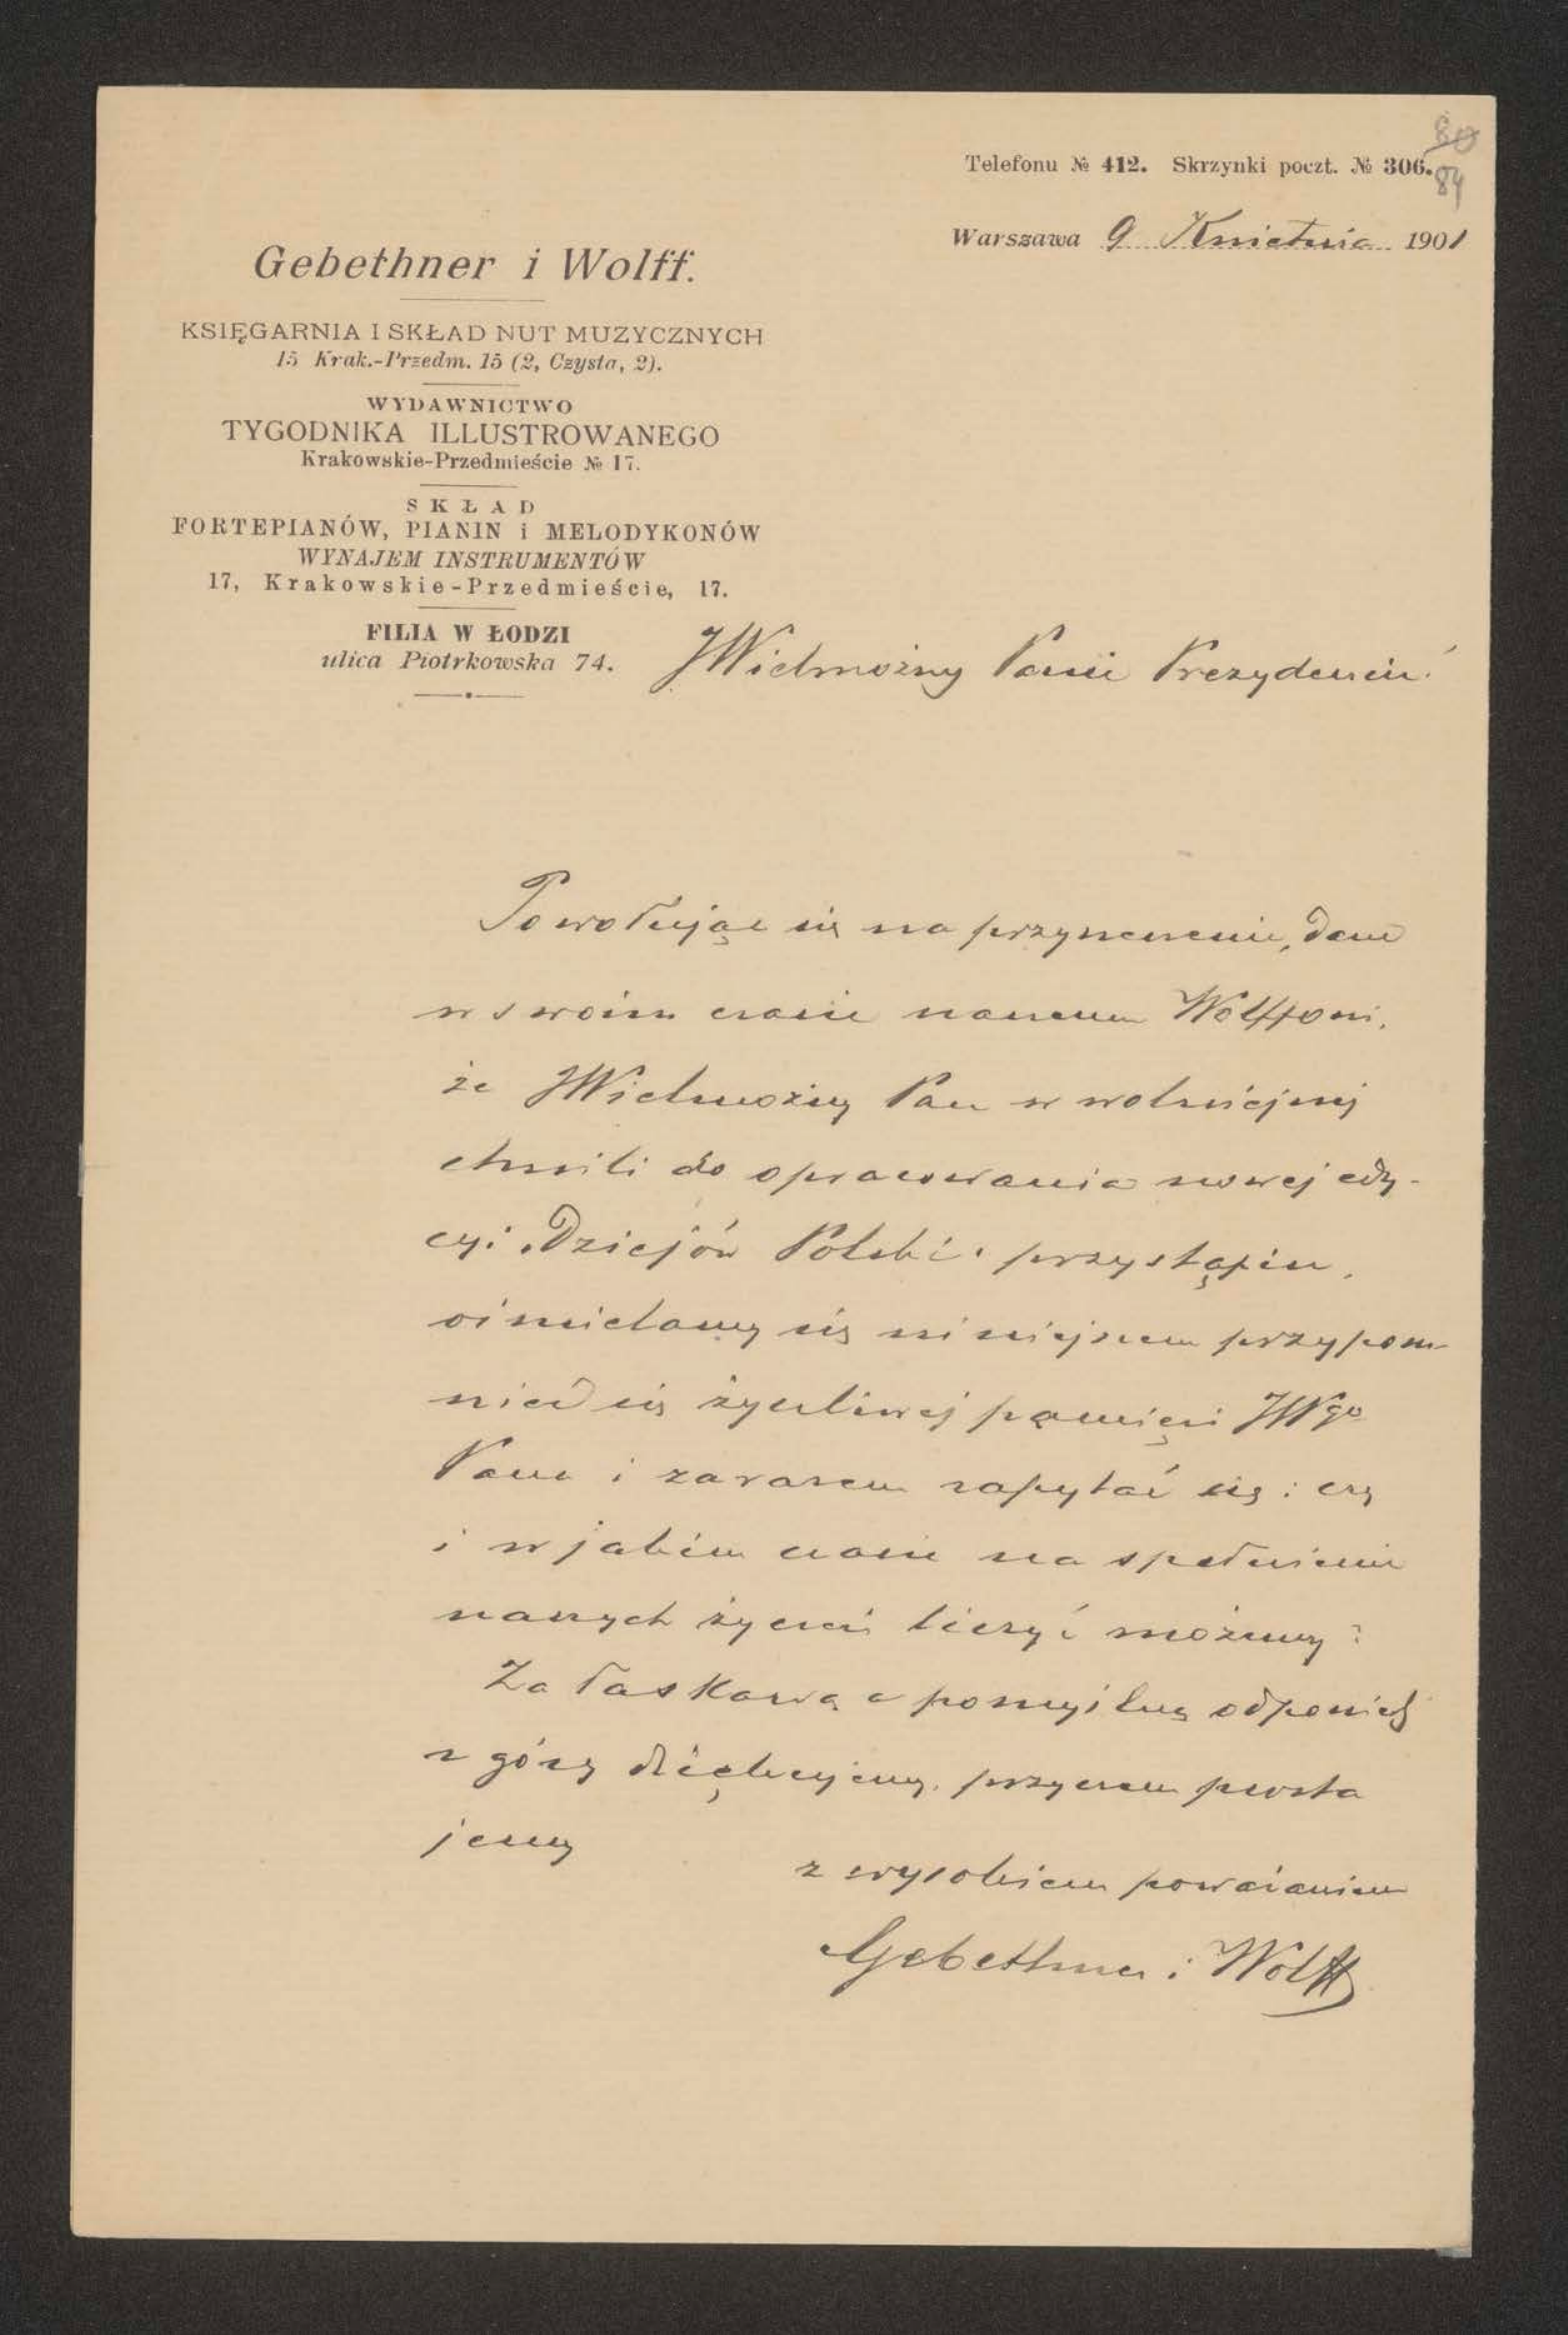 80
Telefonu № 412. Skrzynki poczt. № 306.
84
Warszawa 9 Kwietnia 1901
Gebethner i Wolff.
KSIĘGARNIA I SKŁAD NUT MUZYCZNYCH
15 Krak.-Przedm. 15 (2, Czysta, 2).
WYDAWNICTWO
TYGODNIKA ILLUSTROWANEGO
Krakowskie-Przedmieście № 17.
SKŁAD
FORTEPIANÓW, PIANIN i MELODYKONÓW
WYNAJEM INSTRUMENTÓW
17, Krakowskie-Przedmieście, 17.
FILIA W ŁODZI
ulica Piotrkowska 74.
JWielmożny Panie Prezydencie!
Powołując się na przyrzeczenie, dane
w swoim czasie naszemu Wolffowi,
że JWielmożny Pan w wolniejszej
chwili do opracowania nowej edy-
cyi „Dziejów Polski" przystąpisz,
ośmielamy się niniejszem przypom-
nieć się życzliwej pamięci JWgo
Pana i zarazem zapytać się: czy
i w jakim czasie na spełnienie
naszych życzeń liczyć możemy?
Za łaskawą a pomyślną odpowiedź
z góry dziękujemy, przyczem pozosta
jemy
z wysokiem poważaniem
Gebethner i Wolff